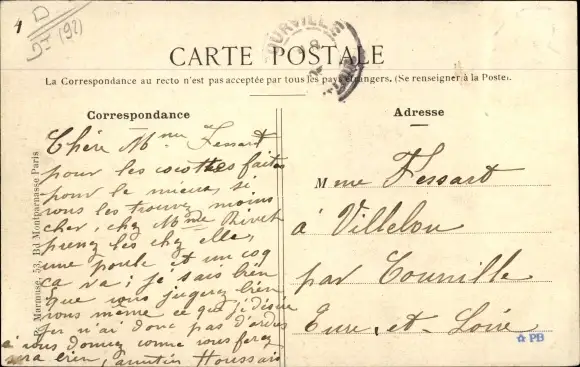 4
D
(92)
CARTE POSTALE
La Correspondance au recto n'est pas acceptée par tous les pays étrangers. (Se renseigner à la Poste).
Correspondance
Chère Mme Fessart
pour les cocottes faites
pour le mieux, si
vous les trouvez moins
cher, chez Mme Rivet
prenez les chez elle,
une poule et un coq
ça va; je sais bien
que vous jugerez bien
vous même ce que je désire
je n'ai donc pas d'ordres
à vous donner comme vous ferez
sera bien,
Marmuse, 53, Bd Montparnasse Paris
Adresse
Mme Fessart
à Villelou
par Courville
Eure-et-Loire
PB